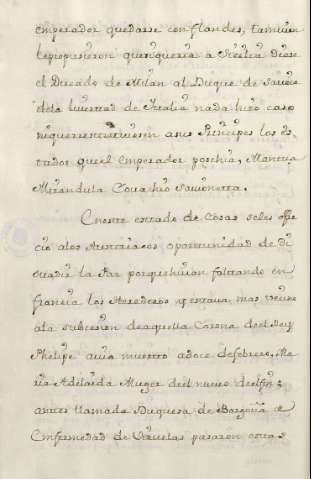 emperador quedarse con flandes, tamuien
le propusieron que si queria a Ytalia diese
el Ducado de Milan al Duque de Saucia
de la livertad de Ytalia nada hizo caso
ni que restituiesen a sus Principes los es-
tados que el emperador poschia, Mantua
Mirandula Coua hio Sauioneta.
En este estado de cosas seles ofre
cio alos Austriacos oportunidad de di
cuadir la Paz porque huian faltando en
francia los Herederos y estaua mas vecino
ala subcesion de aquella Corona de el Rey
Phelipe auia muerto a doce de febrero, Ma
ria Adelaida Muger de el nuevo delfin;
antes llamada Duquesa de Borgoña de
Enfermedad de Viruelas pasaron otras